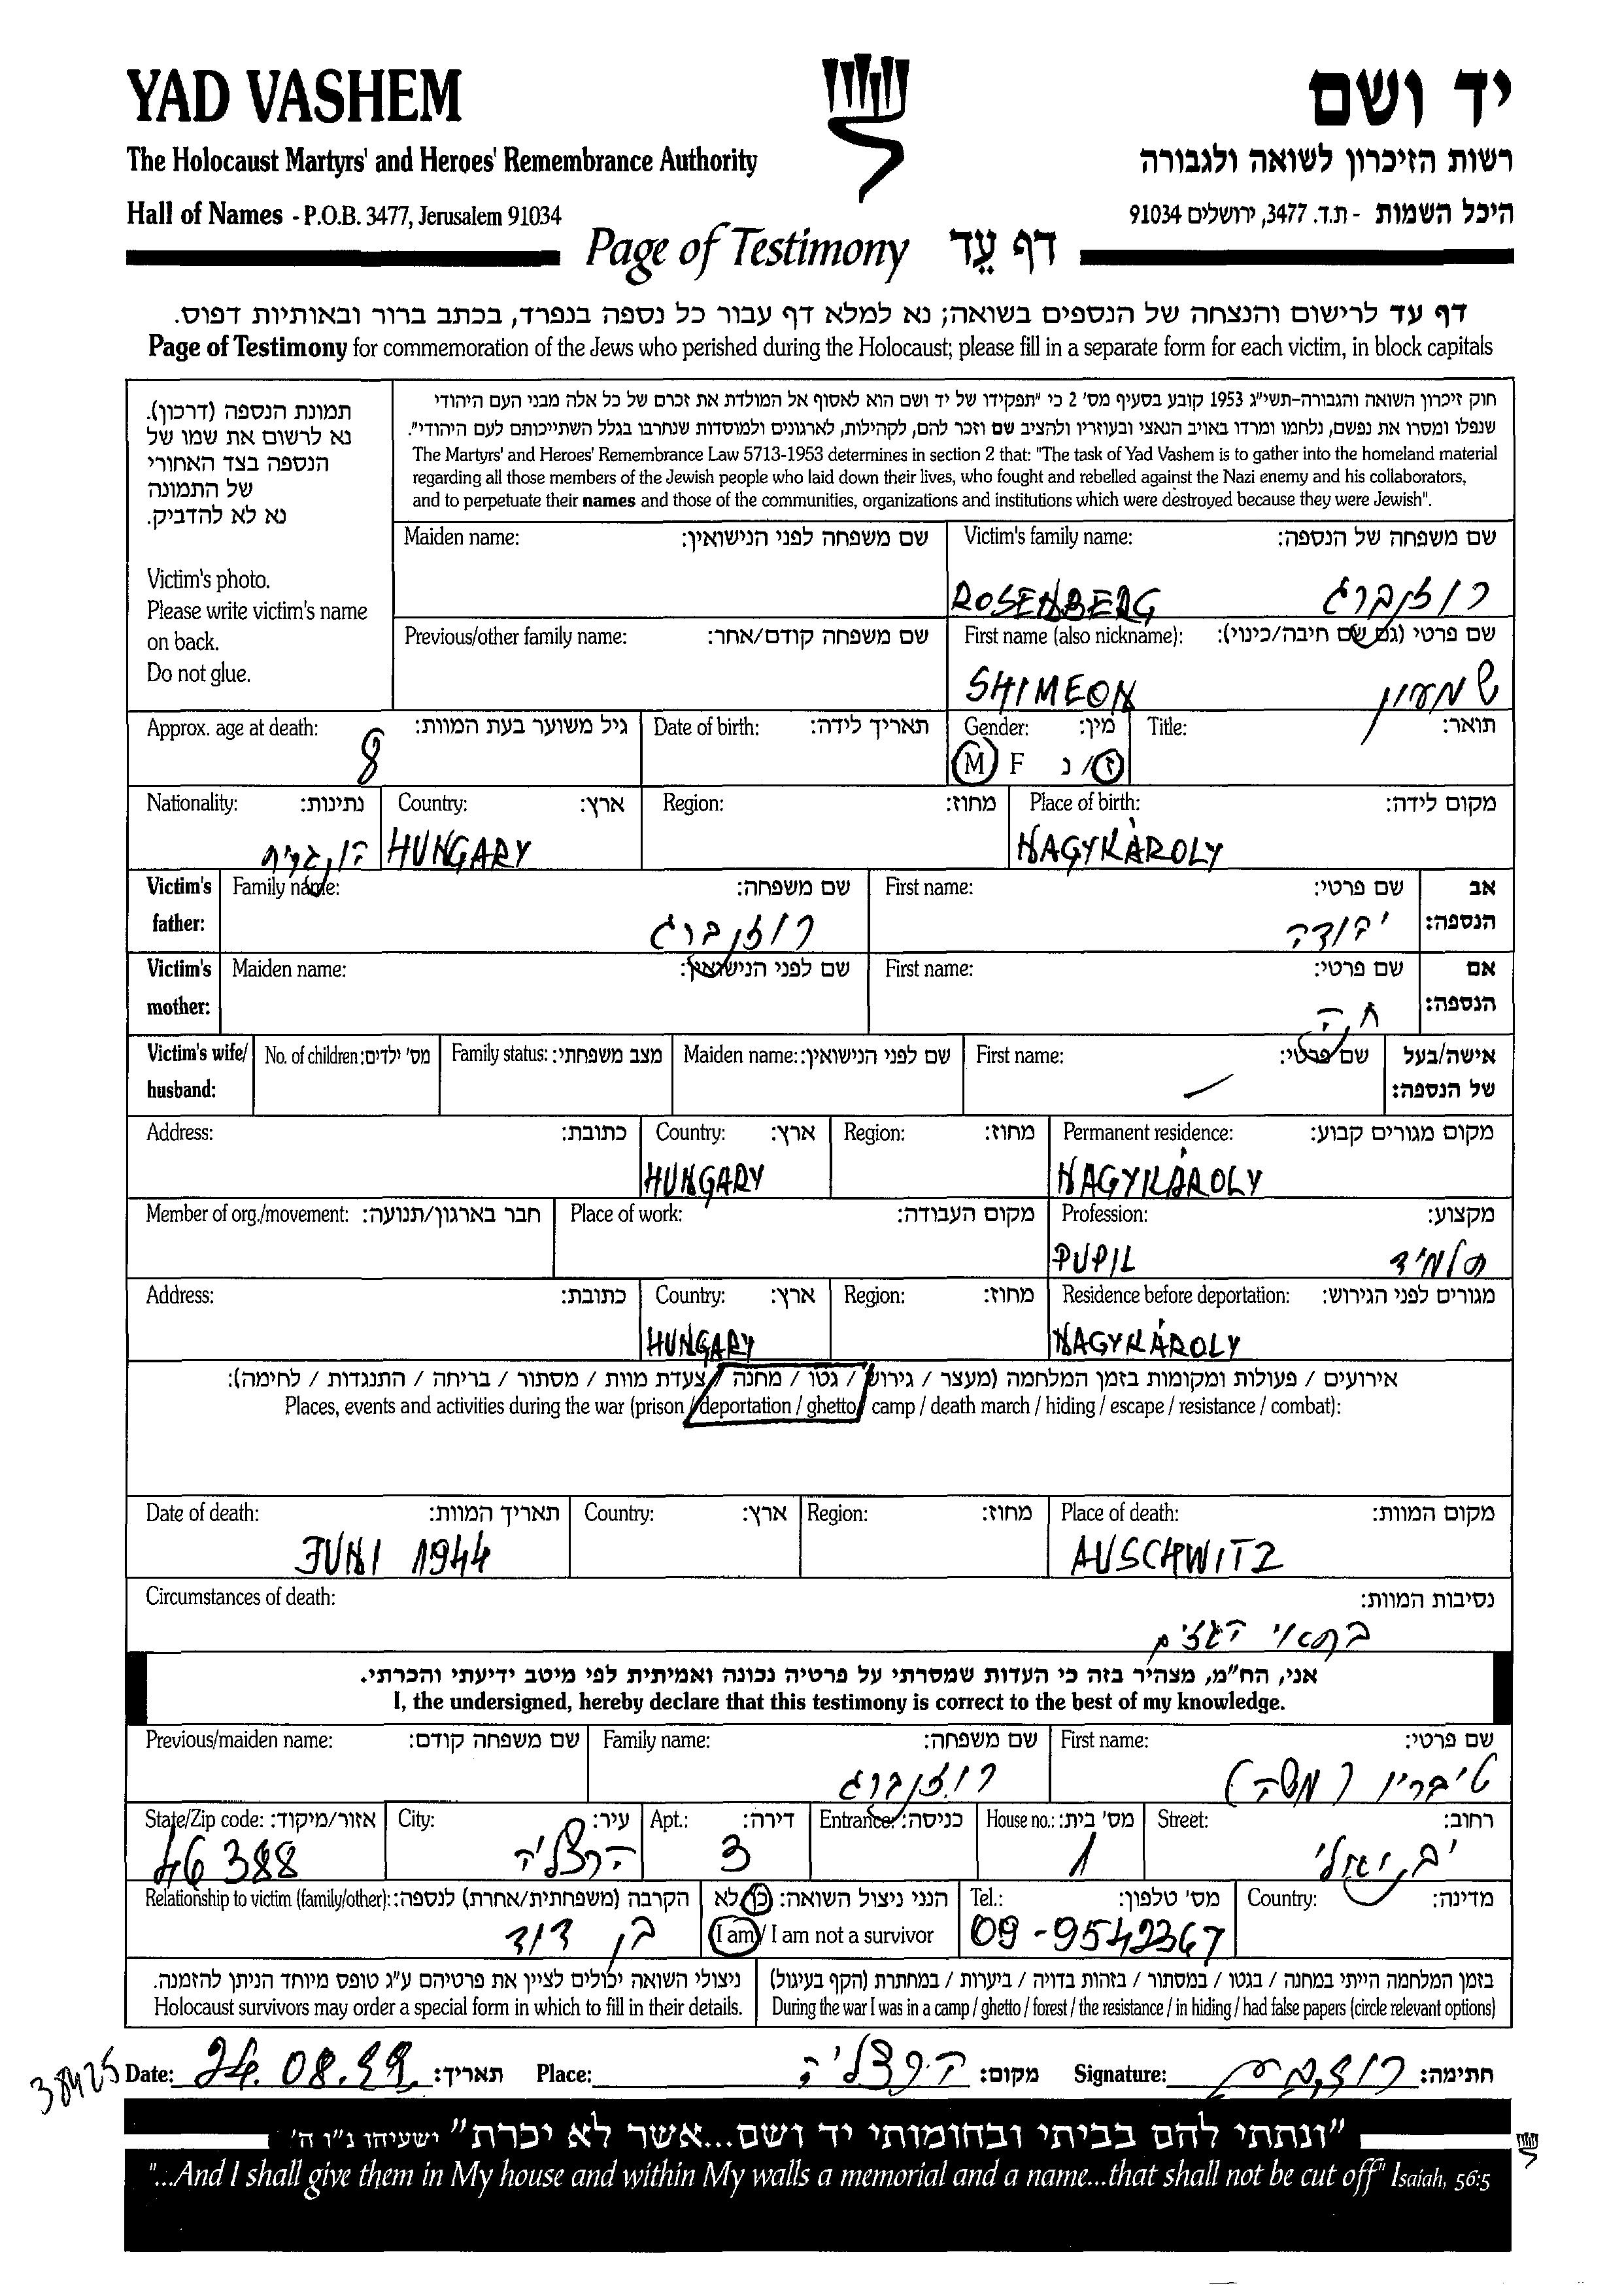 YAD VASHEM
יד ושם
The Holocaust Martyrs' and Heroes' Remembrance Authority
רשות הזיכרון לשואה ולגבורה
Hall of Names - P.O.B. 3477, Jerusalem 91034
היכל השמות - ת.ד. 3477, ירושלים 91034
Page of Testimony דף עֵד
דף עד לרישום והנצחה של הנספים בשואה; נא למלא דף עבור כל נספה בנפרד, בכתב ברור ובאותיות דפוס.
Page of Testimony for commemoration of the Jews who perished during the Holocaust; please fill in a separate form for each victim, in block capitals
תמונת הנספה (דרכון).
נא לרשום את שמו של
הנספה בצד האחורי
של התמונה
נא לא להדביק.
Victim's photo.
Please write victim's name
on back.
Do not glue.
חוק זיכרון השואה והגבורה-תשי"ג 1953 קובע בסעיף מס' 2 כי "תפקידו של יד ושם הוא לאסוף אל המולדת את זכרם של כל אלה מבני העם היהודי
שנפלו ומסרו את נפשם, נלחמו ומרדו באויב הנאצי ובעוזריו ולהציב שם וזכר להם, לקהילות, לארגונים ולמוסדות שנחרבו בגלל השתייכותם לעם היהודי".
The Martyrs' and Heroes' Remembrance Law 5713-1953 determines in section 2 that: "The task of Yad Vashem is to gather into the homeland material
regarding all those members of the Jewish people who laid down their lives, who fought and rebelled against the Nazi enemy and his collaborators,
and to perpetuate their names and those of the communities, organizations and institutions which were destroyed because they were Jewish".
Maiden name: שם משפחה לפני הנישואין: Victim's family name: שם משפחה של הנספה:
ROSENBERG רוזנברג
Previous/other family name: שם משפחה קודם/אחר: First name (also nickname): שם פרטי (גם שם חיבה/כינוי):
SHIMEON שמעון
Approx. age at death: גיל משוער בעת המוות: Date of birth: תאריך לידה: Gender: מין: Title: תואר:
8 M F ז/נ
Nationality: נתינות: Country: ארץ: Region: מחוז: Place of birth: מקום לידה:
הונגרית HUNGARY NAGYKÁROLY
Victim's father: Family name: שם משפחה: First name: שם פרטי: אב הנספה:
רוזנברג יהודה
Victim's mother: Maiden name: שם לפני הנישואין: First name: שם פרטי: אם הנספה:
חנה
Victim's wife/husband: No. of children: מס' ילדים: Family status: מצב משפחתי: Maiden name: שם לפני הנישואין: First name: שם פרטי: אישה/בעל של הנספה:
Address: כתובת: Country: ארץ: Region: מחוז: Permanent residence: מקום מגורים קבוע:
HUNGARY NAGYKÁROLY
Member of org./movement: חבר בארגון/תנועה: Place of work: מקום העבודה: Profession: מקצוע:
PUPIL תלמיד
Address: כתובת: Country: ארץ: Region: מחוז: Residence before deportation: מגורים לפני הגירוש:
HUNGARY NAGYKÁROLY
אירועים / פעולות ומקומות בזמן המלחמה (מעצר / גירוש / גטו / מחנה / צעדת מוות / מסתור / בריחה / התנגדות / לחימה):
Places, events and activities during the war (prison / deportation / ghetto / camp / death march / hiding / escape / resistance / combat):
Date of death: תאריך המוות: Country: ארץ: Region: מחוז: Place of death: מקום המוות:
JUNI 1944 AUSCHWITZ
Circumstances of death: נסיבות המוות:
בתאי הגזים
אני, הח"מ, מצהיר בזה כי העדות שמסרתי על פרטיה נכונה ואמיתית לפי מיטב ידיעתי והכרתי.
I, the undersigned, hereby declare that this testimony is correct to the best of my knowledge.
Previous/maiden name: שם משפחה קודם: Family name: שם משפחה: First name: שם פרטי:
רוזנברג טיבריו (משה)
State/Zip code: אזור/מיקוד: City: עיר: Apt.: דירה: Entrance: כניסה: House no.: מס' בית: Street: רחוב:
46388 הרצליה 3 1
Relationship to victim (family/other): הקרבה (משפחתית/אחרת) לנספה: הנני ניצול השואה: כן/לא Tel.: מס' טלפון: Country: מדינה:
בן דוד I am / I am not a survivor 09-9542367
ניצולי השואה יכולים לציין את פרטיהם ע"ג טופס מיוחד הניתן להזמנה. בזמן המלחמה הייתי במחנה / בגטו / במסתור / בזהות בדויה / ביערות / במחתרת (הקף בעיגול)
Holocaust survivors may order a special form in which to fill in their details. During the war I was in a camp / ghetto / forest / the resistance / in hiding / had false papers (circle relevant options)
38425 Date: 24.08.99 תאריך: Place: הרצליה מקום: Signature: חתימה:
"ונתתי להם בביתי ובחומותי יד ושם...אשר לא יכרת" ישעיהו נ"ו ה'
"...And I shall give them in My house and within My walls a memorial and a name...that shall not be cut off" Isaiah, 56:5